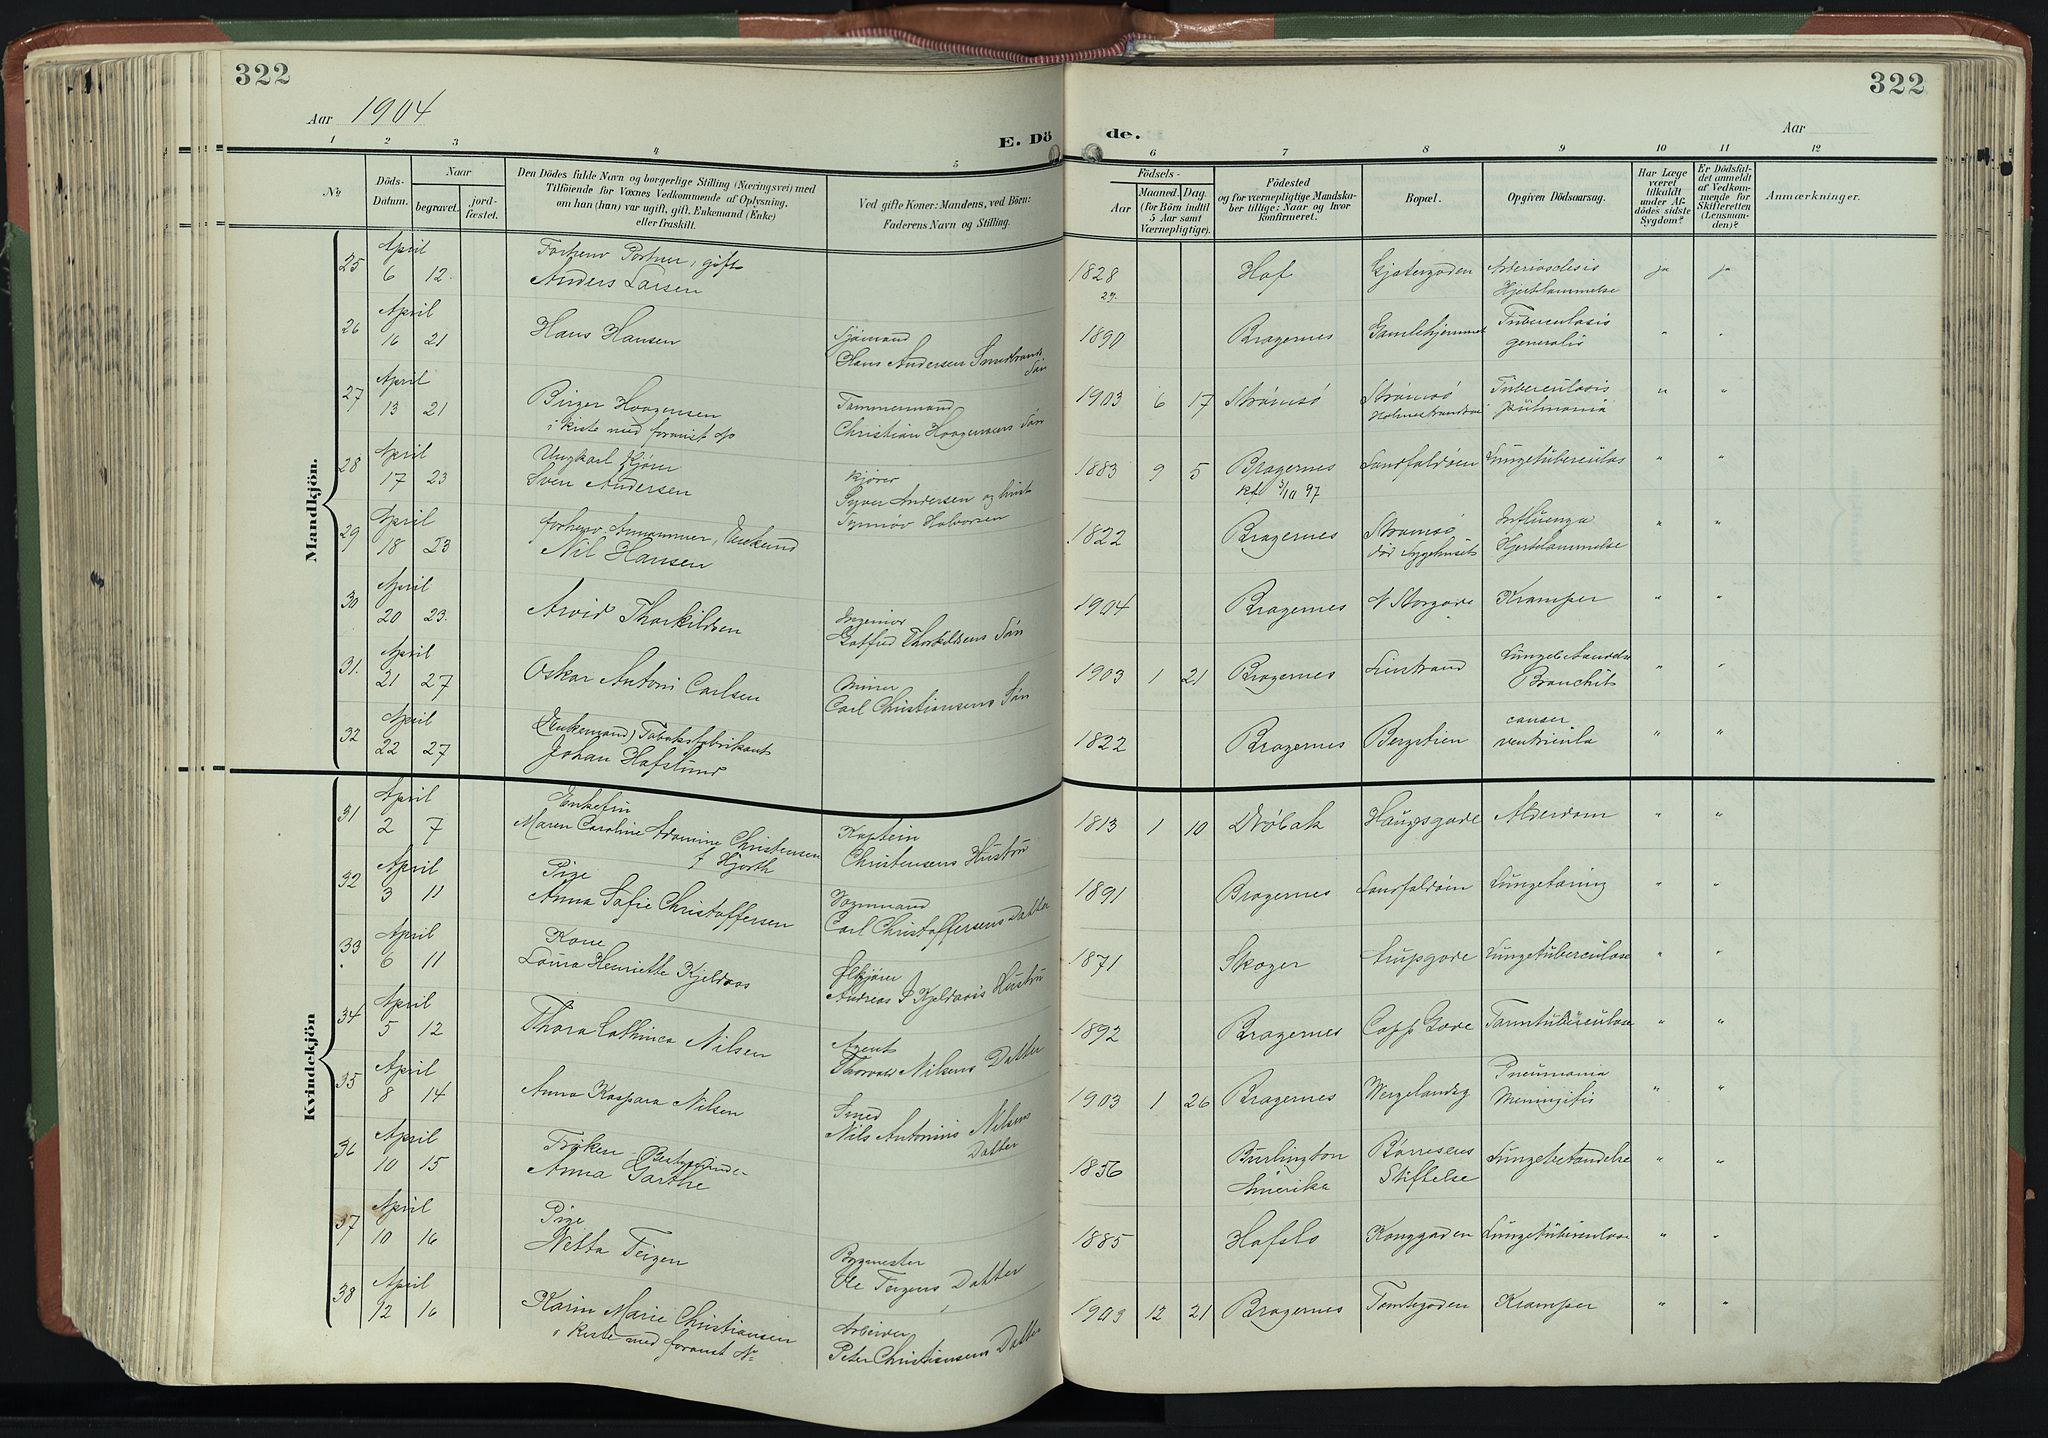 322
322
Aar 1904
Aar
E. Dö de.
1 2 3 4 5 6 7 8 9 10 11 12
No
Döds-Datum.
Naar
begravet.
jord-fæstet.
Den Dödes fulde Navn og borgerlige Stilling (Næringsvei) med
Tilföiende for Voxnes Vedkommende af Oplysning,
om han (hun) var ugift, gift, Enkemand (Enke)
eller fraskilt.
Ved gifte Koner: Mandens, ved Börn:
Faderens Navn og Stilling.
Födsels-
Aar
Maaned. Dag.
(for Börn indtil
5 Aar samt
Værnepligtige).
Födested
og for værnepligtige Mandska-
ber tillige: Naar og hvor
konfirmeret.
Bopæl.
Opgiven Dödsaarsag.
Har Læge
været
tilkaldt
under Af-
dödes sidste
Sygdom?
Er Dödsfal-
det anmeldt
af Vedkom-
mende for
Skifteretten
(Lensman-
den)?
Anmærkninger.
Mandkjön.
25 April 6 12. Portner, gift
Anders Larsen
1828 Hof ja ja
29. Hjertelammelse
26 April 16 21 Hans Hansen Sjömand
Hans Andersen Smedstrands Søn
1890 Bragernes Gamlehjemmet Tuberculosis
generalis " "
27 April 13 21 Birger Haagensen Tømmermand
i kiste med foranst No Christian Haagensens Søn
1903 6 17 Strømsø Strømsø Tuberculosis " "
Holmestrandsvei
28 April 17 23 Ungkarl Kjører Kjører
Sven Andersen Syver Andersen og hust
Synnøv Halvorsen
1883 9 5 Bragernes Landfaldøen Lungetuberculos " "
kf 3/10 97
29 April 18 23 Enkemd
Nil Hansen
1822 Bragernes Strømsø Influenza " "
Sygehuset Hjertelammelse
30 April 20 23. Arvid Thorkildsen Ingeniør
Gotfred Thorkildsens Søn
1904 Bragernes N Storgade Kramper " "
31. April 21 27 Oskar Antoni Carlsen Minør
Carl Christiansens Søn
1903 1 21 Bragernes Lierstrand Lungebetændelse
Bronchit " "
32 April 22 27 (Enkemand) Tobaksfabrikant
Johan Hafslund
1822 Bragernes Bergstien cancer
ventricula " "
Kvindekjön
31 April 2 7 Enkefru Kaptein
Maren Caroline Adamine Christensen Christensens Hustru
f Hjorth
1813 1 10 Drøbak Haugesgade Alderdom " "
32 April 3 11 Pige
Anna Sofie Christoffersen Vognmand
Carl Christoffersens Datter
1891 Bragernes Landfaldøen Lungetæring " "
33 April 6 11 Kone
Laura Henriette Kjeldaas Ølkjører
Andreas P Kjeldaas Hustru
1871 Skoger Arupgade Lungetuberculose " "
34 April 5 12 Thora Cathinca Nilsen Agent
Thorvald Nilsens Datter
1892 Bragernes Capp Gade Tarmtuberculose " "
35 April 8 14 Anna Kaspara Nilsen Smed
Nils Antonius Nilsens
Datter
1903 1 26 Bragernes Wergelandsg Pneumonia
Meningitis " "
36 April 10 15 Frøken Bestyrerinde
Anna Garthe
1856 Burlington Børresens Lungebetændelse " "
Amerika Stiftelse
37 April 10 16 Pige
Netta Teigen Bygmester
Ole Teigens Datter
1885 Hafslo Konggaden Lungetuberculose " "
38 April 12 16 Karin Marie Christiansen Arbeider
i kiste med foranst No Peter Christiansens Datter
1903 12 21 Bragernes Tomtegaden Kramper " "